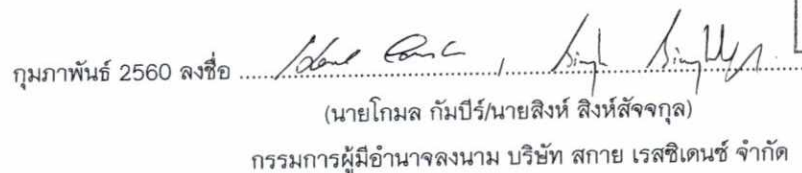 กุมภาพันธ์ 2560 ลงชื่อ ........................ , ........................
(นายโกมล กัมบีร์/นายสิงห์ สิงห์สัจจกุล)
กรรมการผู้มีอำนาจลงนาม บริษัท สกาย เรสซิเดนซ์ จำกัด